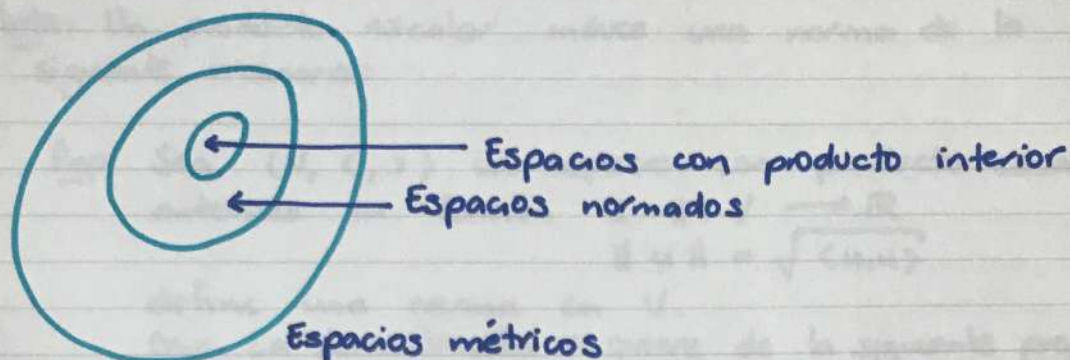 Espacios con producto interior
Espacios normados
Espacios métricos